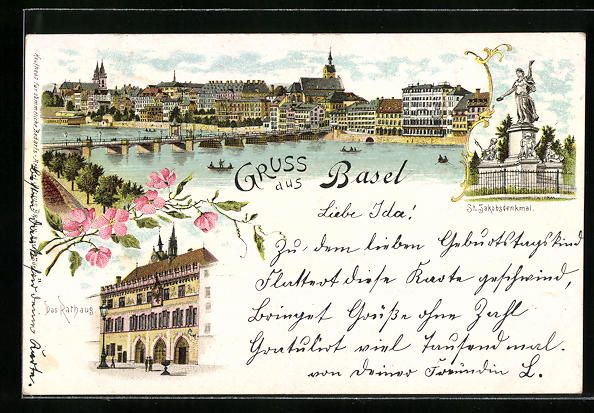 GRUSS aus Basel
St. Jakobsdenkmal.
Das Rathaus
Liebe Ida!
Zu dem lieben Geburtstagskind
Flattert diese Karte geschwind,
Bringet Grüße ohne Zahl
Gratuliert viel Tausend mal.
von deiner Freundin L.
für deine Karte.